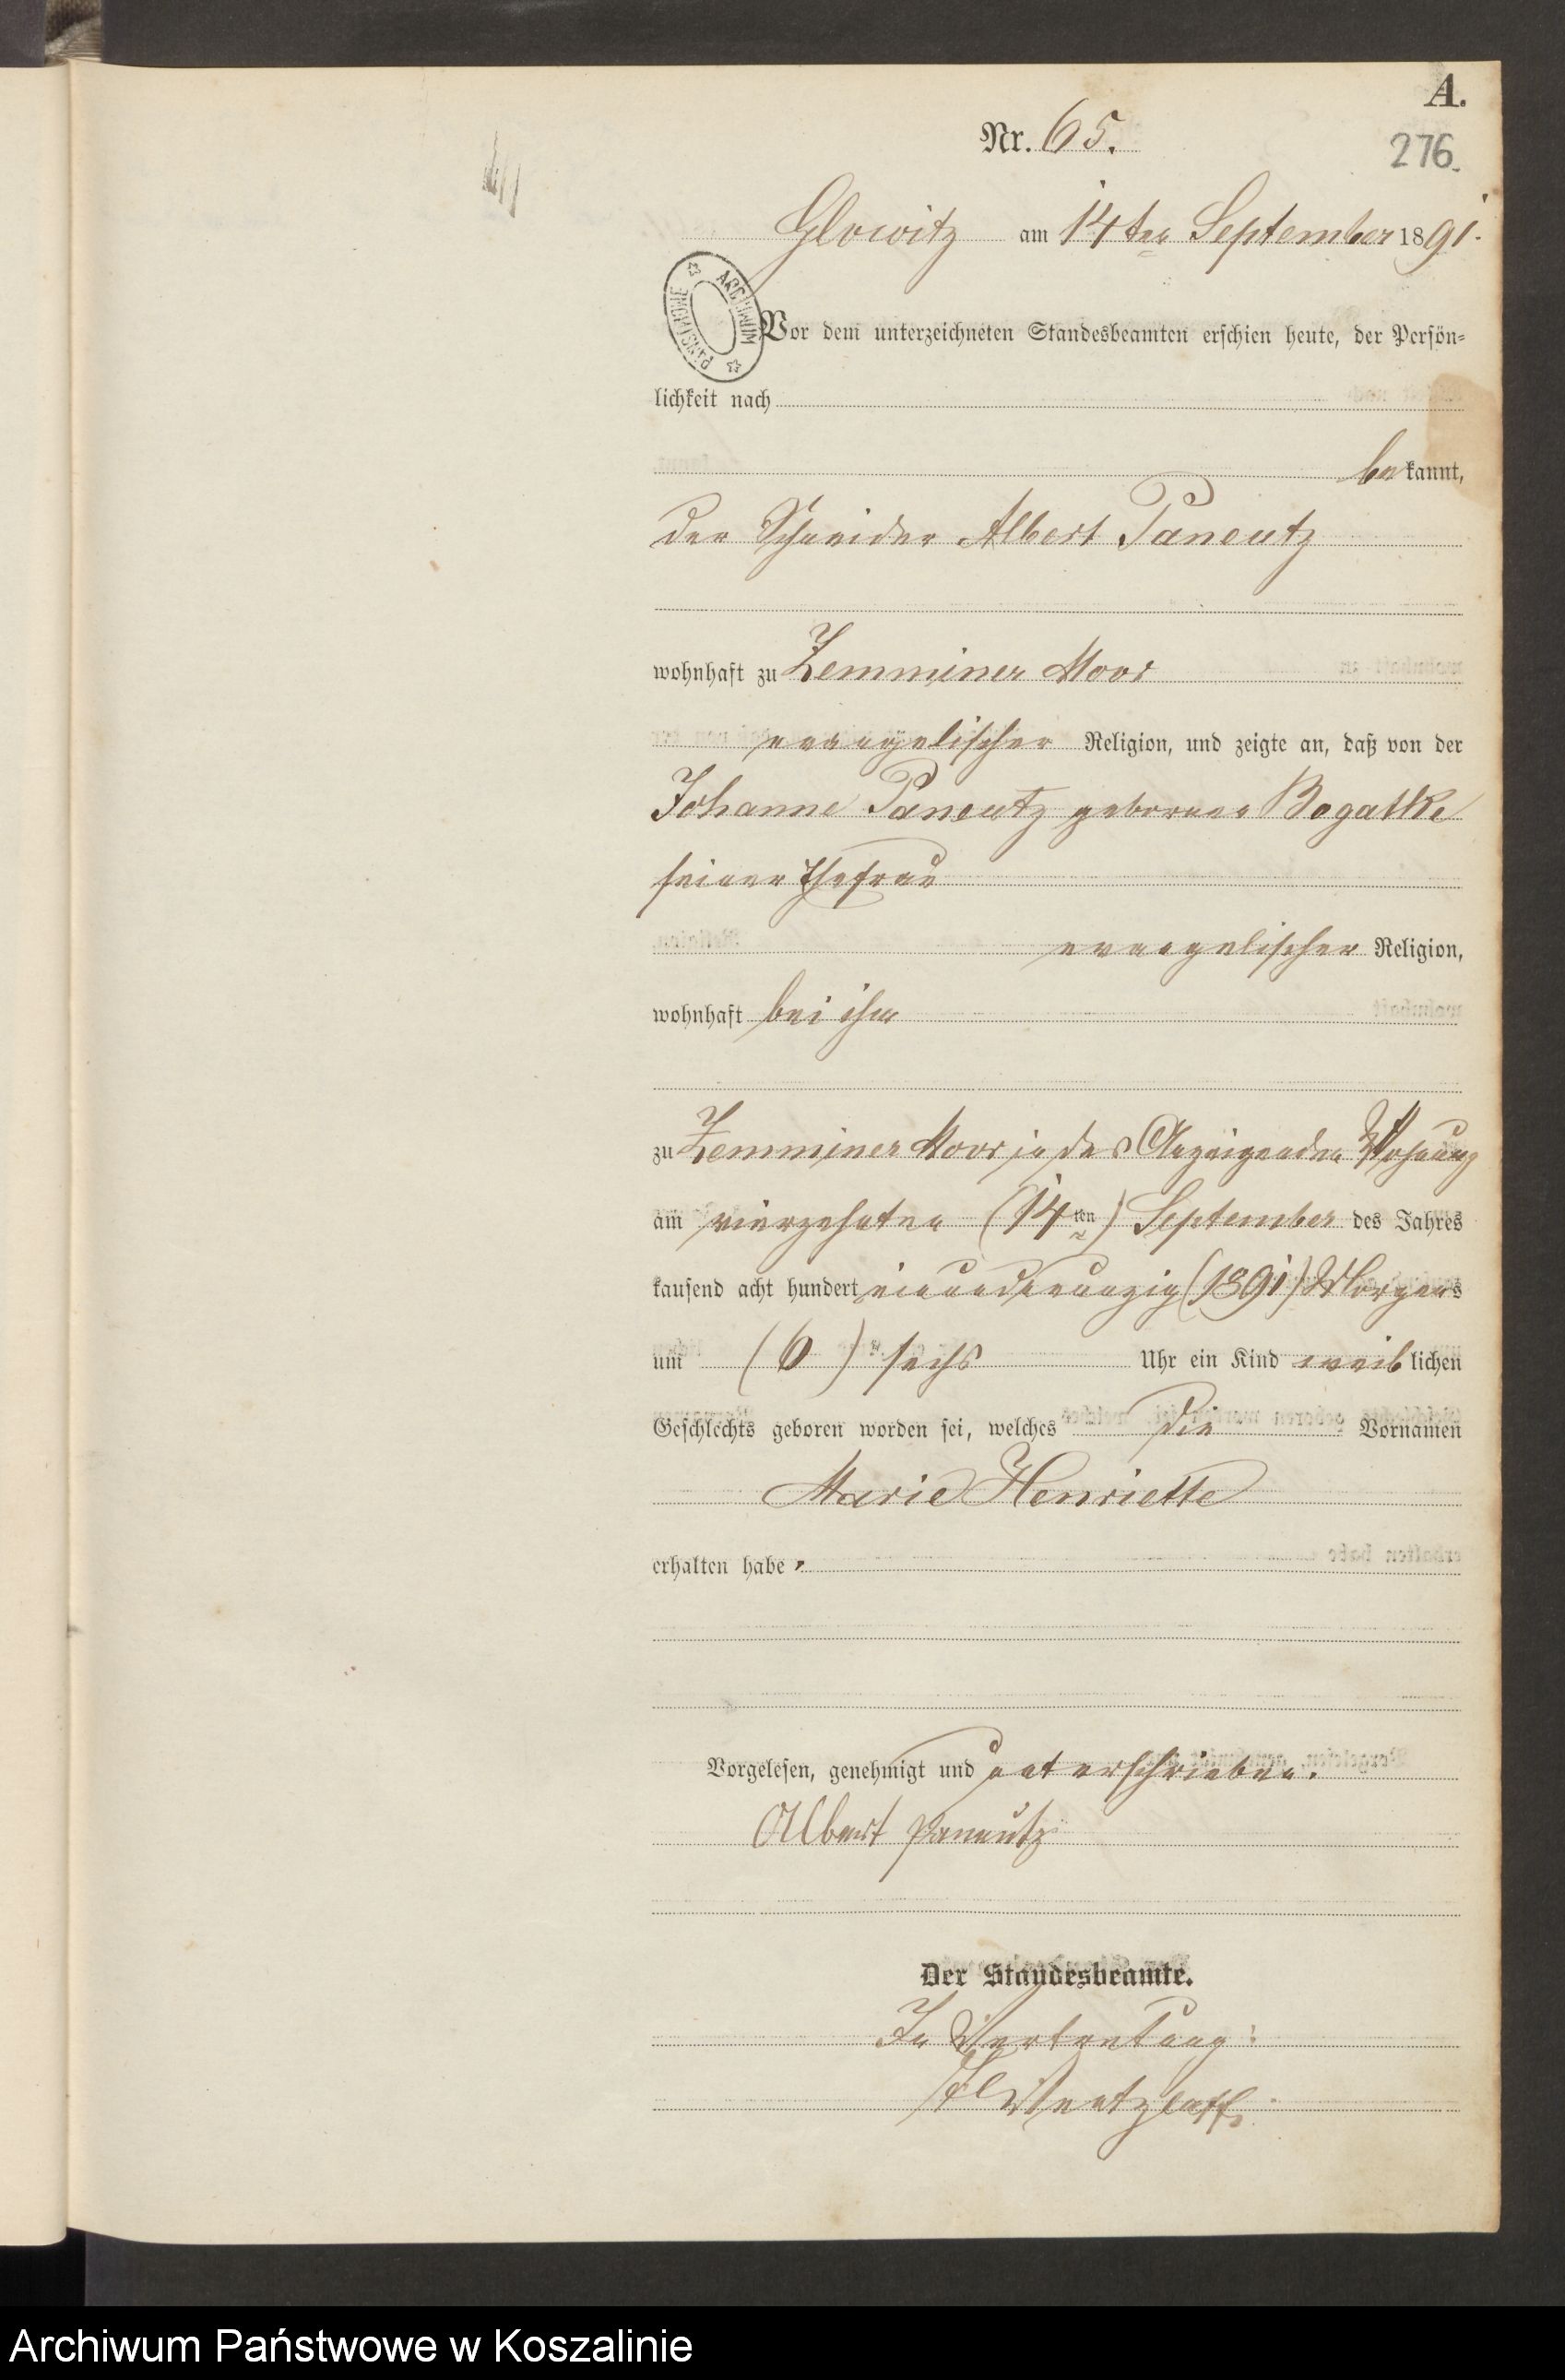 A.
Nr. 65.
276.
Glowitz am 14ten September 1891.
ARCHIWUM PAŃSTWOWE
Vor dem unterzeichneten Standesbeamten erschien heute, der Persön-
lichkeit nach
bekannt,
der Schneider Albert Paneutz
wohnhaft zu Zemminer Moor
evangelischer Religion, und zeigte an, daß von der
Johanne Paneutz geborner Bogatke
seiner Ehefrau
evangelischer Religion,
wohnhaft bei ihm
zu Zemminer Moor in des Anzeigenden Wohnung
am vierzehnten (14ten) September des Jahres
tausend acht hundert einundneunzig (1891) Morgens
um (6) sechs Uhr ein Kind weiblichen
Geschlechts geboren worden sei, welches die Vornamen
Marie Henriette
erhalten habe.
Vorgelesen, genehmigt und unterschrieben.
Albert Paneutz
Der Standesbeamte.
In Vertretung:
Ventzlaff.
Archiwum Państwowe w Koszalinie